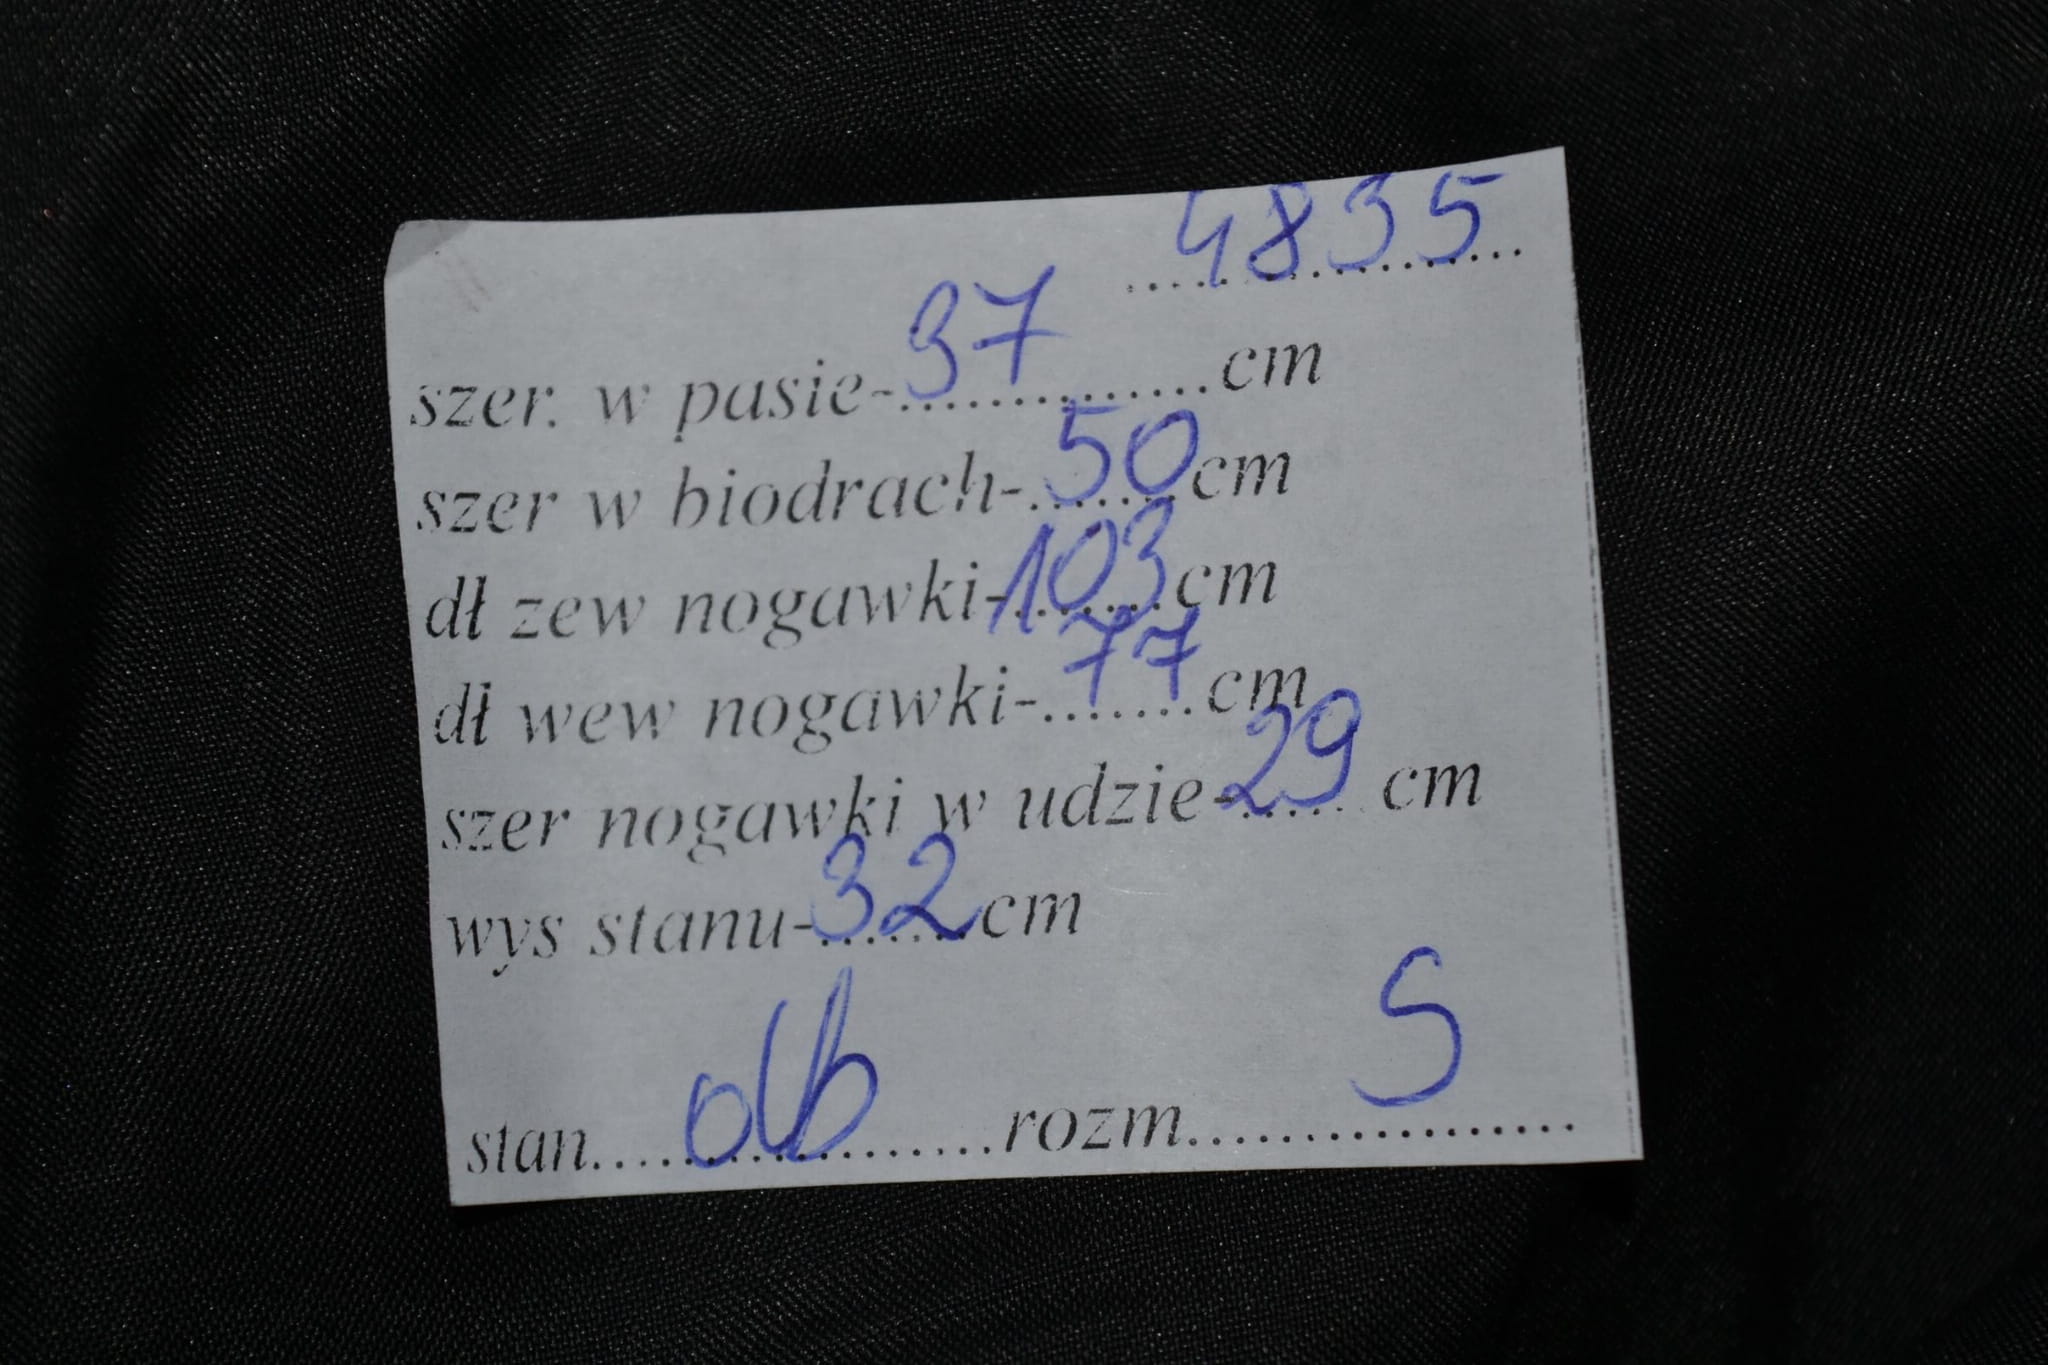 4835
szer. w pasie-37 cm
szer w biodrach-50 cm
dł zew nogawki-103 cm
dł wew nogawki-77 cm
szer nogawki w udzie-29 cm
wys stanu-32 cm
stan.... rozm.... S